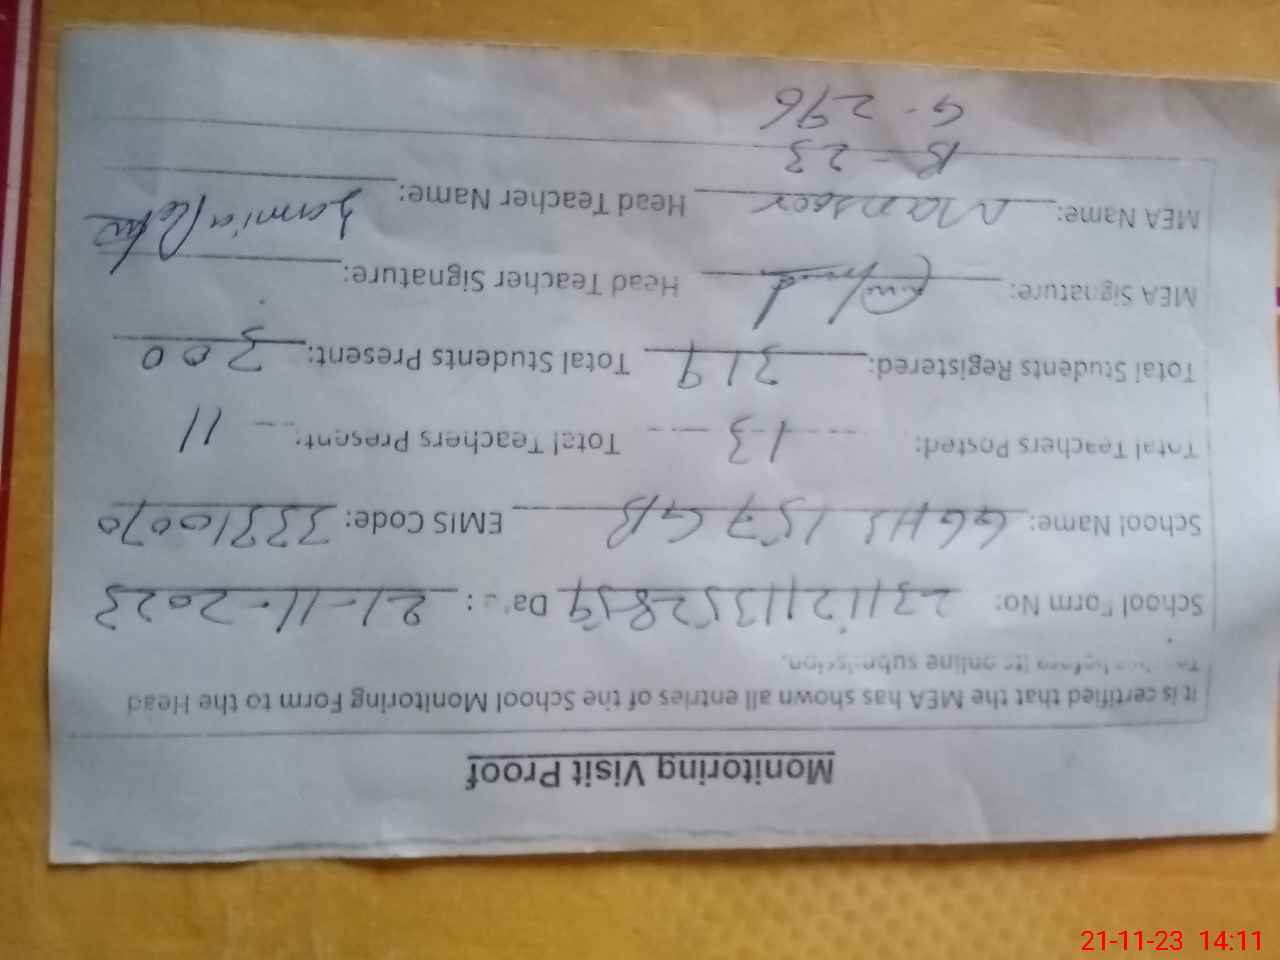 Monitoring Visit Proof
It is certified that the MEA has shown all entries of the School Monitoring Form to the Head
before its online submission.
School Form No: Date: 21-11-2023
School Name: GGHS 157 GB EMIS Code: 33310070
Total Teachers Posted: 13 Total Teachers Present: 11
Total Students Registered: 319 Total Students Present: 300
MEA Signature: Head Teacher Signature:
MEA Name: Mansoor Head Teacher Name:
B - 23
G - 296
21-11-23 14:11